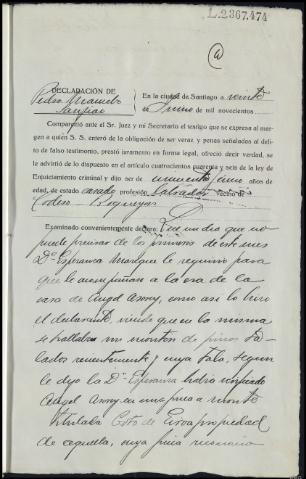 L.2.367.474
DECLARACIÓN DE
Pedro
En la ciudad de Santiago a veinte
de Junio de mil novecientos
Compareció ante el Sr. Juez y mi Secretario el testigo que se expresa al margen
a quien S. S. enteró de la obligación de ser veraz y penas señaladas al delito
de falso testimonio, prestó juramento en forma legal, ofreció decir verdad, se
le advirtió de lo dispuesto en el artículo cuatrocientos cuarenta y seis de la ley de
Enjuiciamiento criminal y dijo ser de años de
edad, de estado casado profesión labrador vecino de
Examinado convenientemente declara: Que un dia que no
puede precisar de los primeros de este mes
Dª Esperanza le requirió para
que le acompañara a la era de la
casa de Angel, como asi lo hizo
el declarante, viendo que en la misma
se hallaba un monton de pinos ta-
lados recientemente y cuya tala, segun
le dijo la Dª Esperanza habia
Angel en una pieza a monte
titulada Coto de propiedad
de aquella, cuya pieza